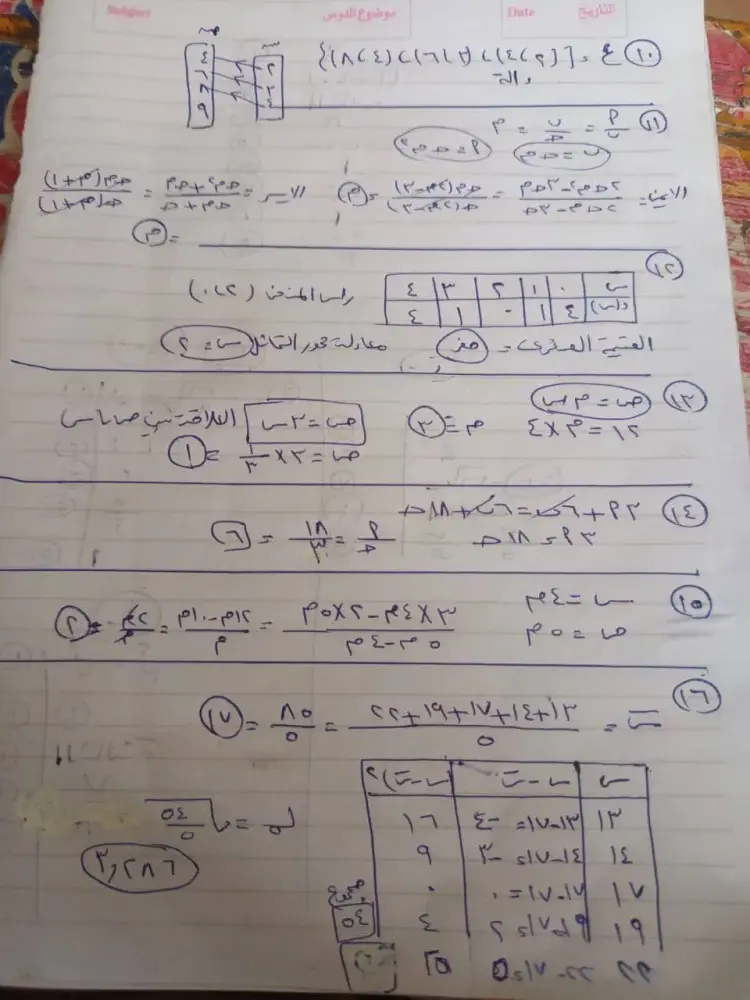 Subject موضوع الدرس Date التاريخ
دالة
١١) أ/ب = ب/ج = م
ب = ج م أ = ج م٢
الأيمن = (٢ج م٢ - ٣ج م)/(٢ج م - ٣ج) = ج م(٢م - ٣)/ج(٢م - ٣) = م الأيسر = (ج م٢ + ج م)/(ج م + ج) = ج م(م + ١)/ج(م + ١)
= م
١٢)
س ٠ ١ ٢ ٣ ٤ رأس المنحنى (٢،٠)
د(س) ٤ ١ ٠ ١ ٤
القيمة الصغرى = صفر معادلة محور التماثل س = ٢
١٣) ص = م س
١٢ = م × ٤ م = ٣ ص = ٣س العلاقة بين ص، س
ص = ٣ × ١/٣ = ١
١٤) ٣أ + ٦ب = ٦ب + ١٨ج
٣أ = ١٨ج أ/ج = ١٨/٣ = ٦
١٥) س = ٤م
ص = ٥م (٣×٤م - ٢×٥م)/(٥م - ٤م) = (١٢م - ١٠م)/م = ٢م/م = ٢
١٦) س̄ = (١٣+١٤+١٧+١٩+٢٢)/٥ = ٨٥/٥ = ١٧
س س - س̄ (س - س̄)٢
١٣ ١٣-١٧= -٤ ١٦
١٤ ١٤-١٧= -٣ ٩
١٧ ١٧-١٧= ٠ ٠
١٩ ١٩-١٧= ٢ ٤
٢٢ ٢٢-١٧= ٥ ٢٥
مجموع ٥٤
σ = √(٥٤/٥)
٣,٢٨٦